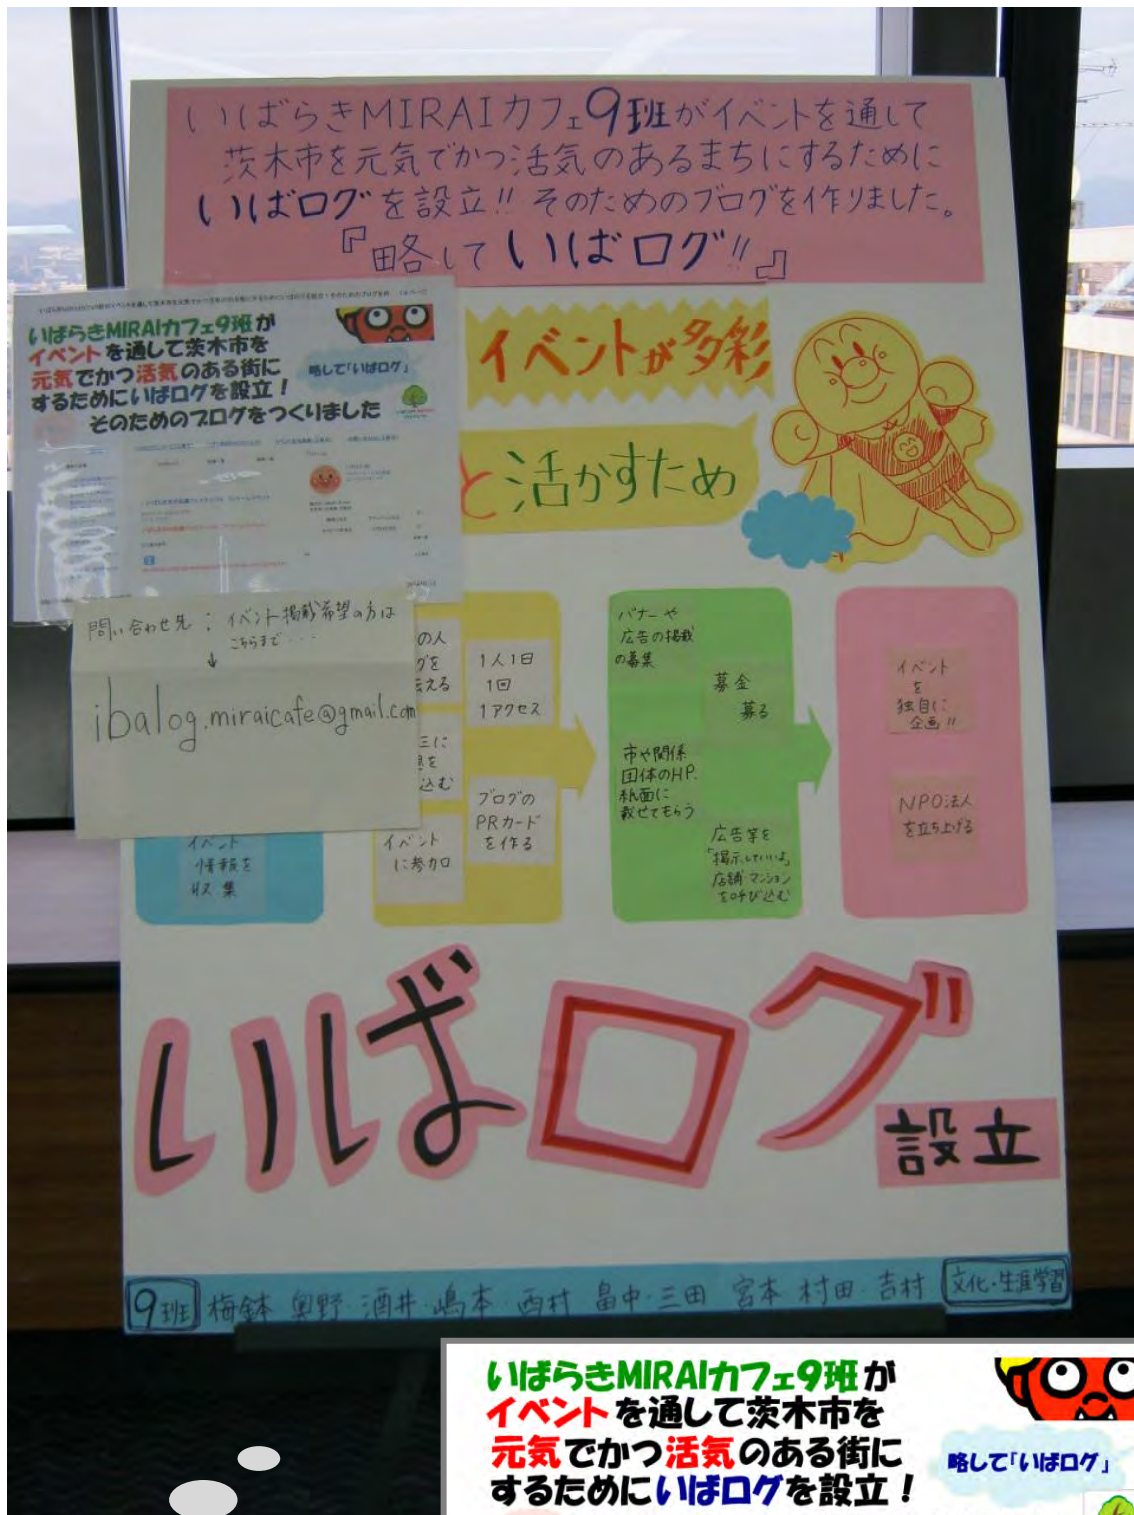 いばらきMIRAIカフェ9班がイベントを通して
茨木市を元気でかつ活気のあるまちにするために
いばログを設立!! そのためのブログを作りました。
『略していばログ!!』
いばらきMIRAIカフェ9班が
イベントを通して茨木市を
元気でかつ活気のある街に
するためにいばログを設立！
そのためのブログをつくりました
略して「いばログ」
イベントが多彩
と活かすため
問い合わせ先：イベント掲載希望の方は
こちらまで・・・
↓
ibalog.miraicafe@gmail.com
イベント
情報を
収集
の人
グを
伝える
込む
イベント
に参加
1人1日
1回
1アクセス
ブログの
PRカード
を作る
バナーや
広告の掲載
の募集
募金
募る
市や関係
団体のHP.
紙面に
載せてもらう
広告等を
「掲示していいよ」
店舗・マンション
を呼び込む
イベント
を
独自に
企画!!
NPO法人
を立ち上げる
いばログ
設立
9班 梅鉢 奥野・酒井・嶋本・西村 畠中・三田 宮本 村田・吉村 文化・生涯学習
いばらきMIRAIカフェ9班が
イベントを通して茨木市を
元気でかつ活気のある街に
するためにいばログを設立！
略して「いばログ」